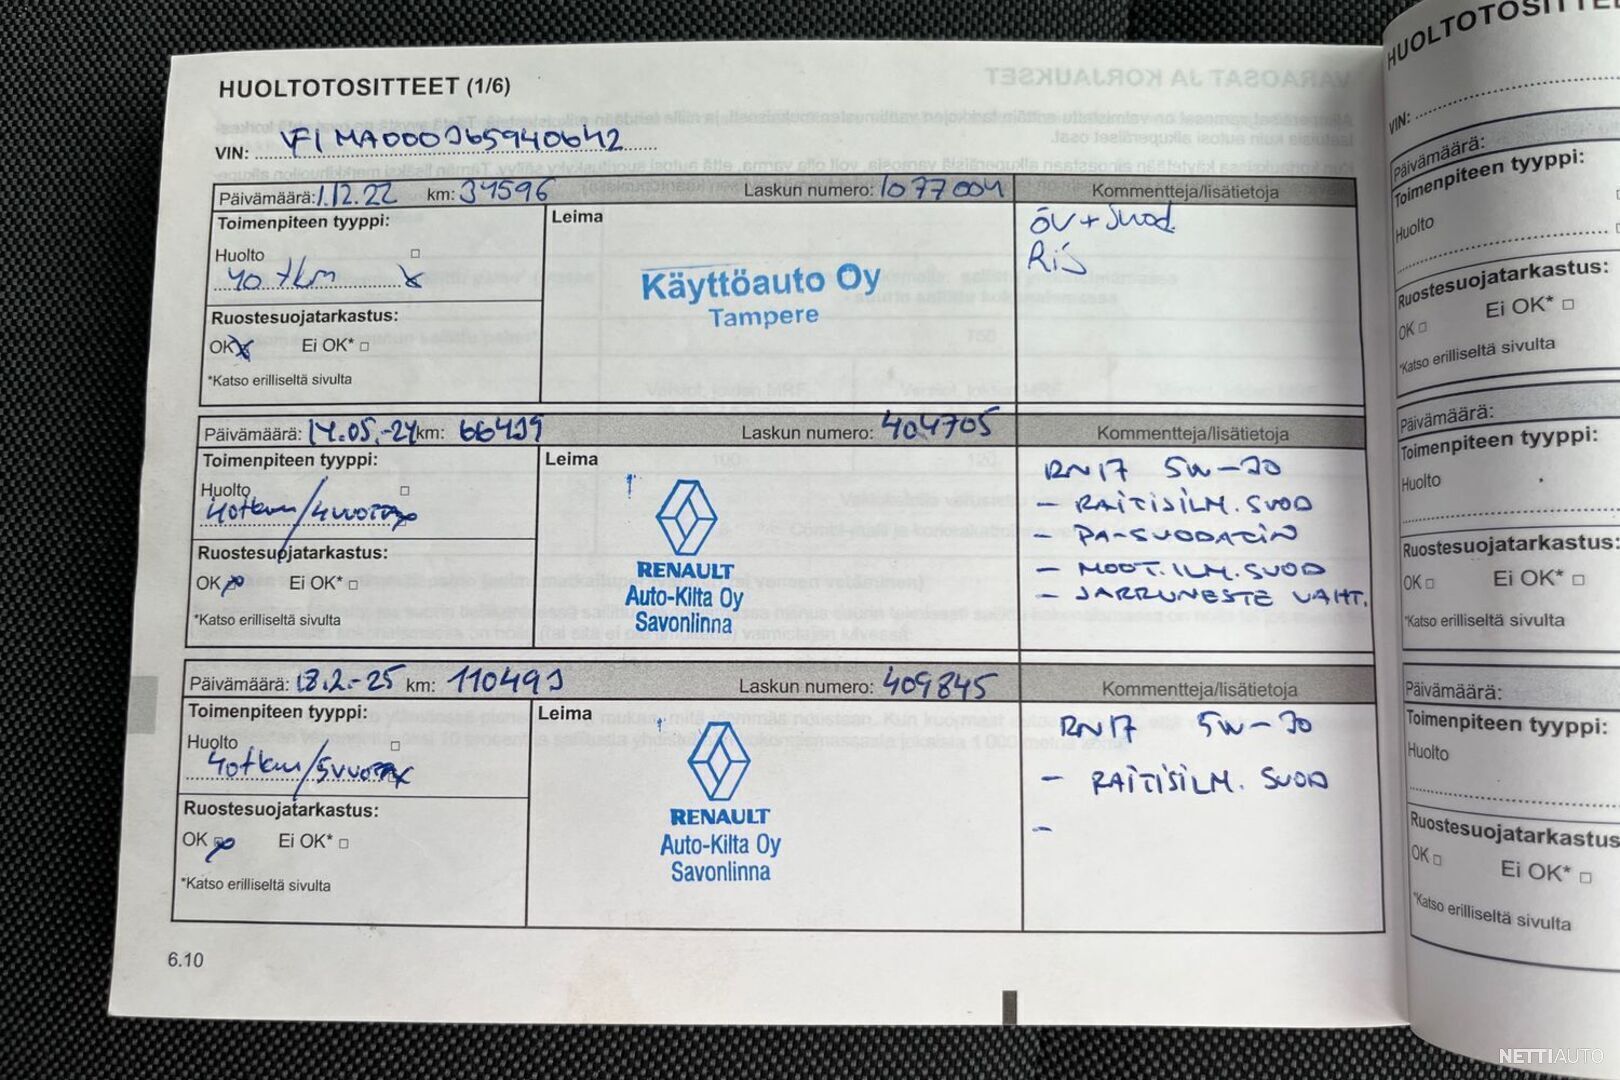 HUOLTOTOSITTEET (1/6)
VIN: VF1MA000365940642
Päivämäärä: 1.12.22 km: 34596 Laskun numero: 1077004 Kommentteja/lisätietoja
Toimenpiteen tyyppi: Leima
öv + suod.
Huolto
RiS
40 tkm x
Käyttöauto Oy
Tampere
Ruostesuojatarkastus:
OK x Ei OK*
*Katso erilliseltä sivulta
Päivämäärä: 14.05.-24 km: 66419 Laskun numero: 404705 Kommentteja/lisätietoja
Toimenpiteen tyyppi: Leima
RN17 5W-30
Huolto
40tkm/4vuotta
- RAITISILM.SUOD
- PA-SUODATIN
- MOOT.ILM.SUOD
- JARRUNESTE VAIHT.
RENAULT
Auto-Kilta Oy
Savonlinna
Ruostesuojatarkastus:
OK Ei OK*
*Katso erilliseltä sivulta
Päivämäärä: 18.2.-25 km: 110493 Laskun numero: 409845 Kommentteja/lisätietoja
Toimenpiteen tyyppi: Leima
RN17 5W-30
Huolto
40tkm/5vuotta
- RAITISILM. SUOD
-
RENAULT
Auto-Kilta Oy
Savonlinna
Ruostesuojatarkastus:
OK Ei OK*
*Katso erilliseltä sivulta
6.10
HUOLTOTOSITTEET
VIN:
Päivämäärä:
Toimenpiteen tyyppi:
Huolto
Ruostesuojatarkastus:
OK Ei OK*
*Katso erilliseltä sivulta
Päivämäärä:
Toimenpiteen tyyppi:
Huolto
Ruostesuojatarkastus:
OK Ei OK*
*Katso erilliseltä sivulta
Päivämäärä:
Toimenpiteen tyyppi:
Huolto
Ruostesuojatarkastus:
OK Ei OK*
*Katso erilliseltä sivulta
NETTIAUTO